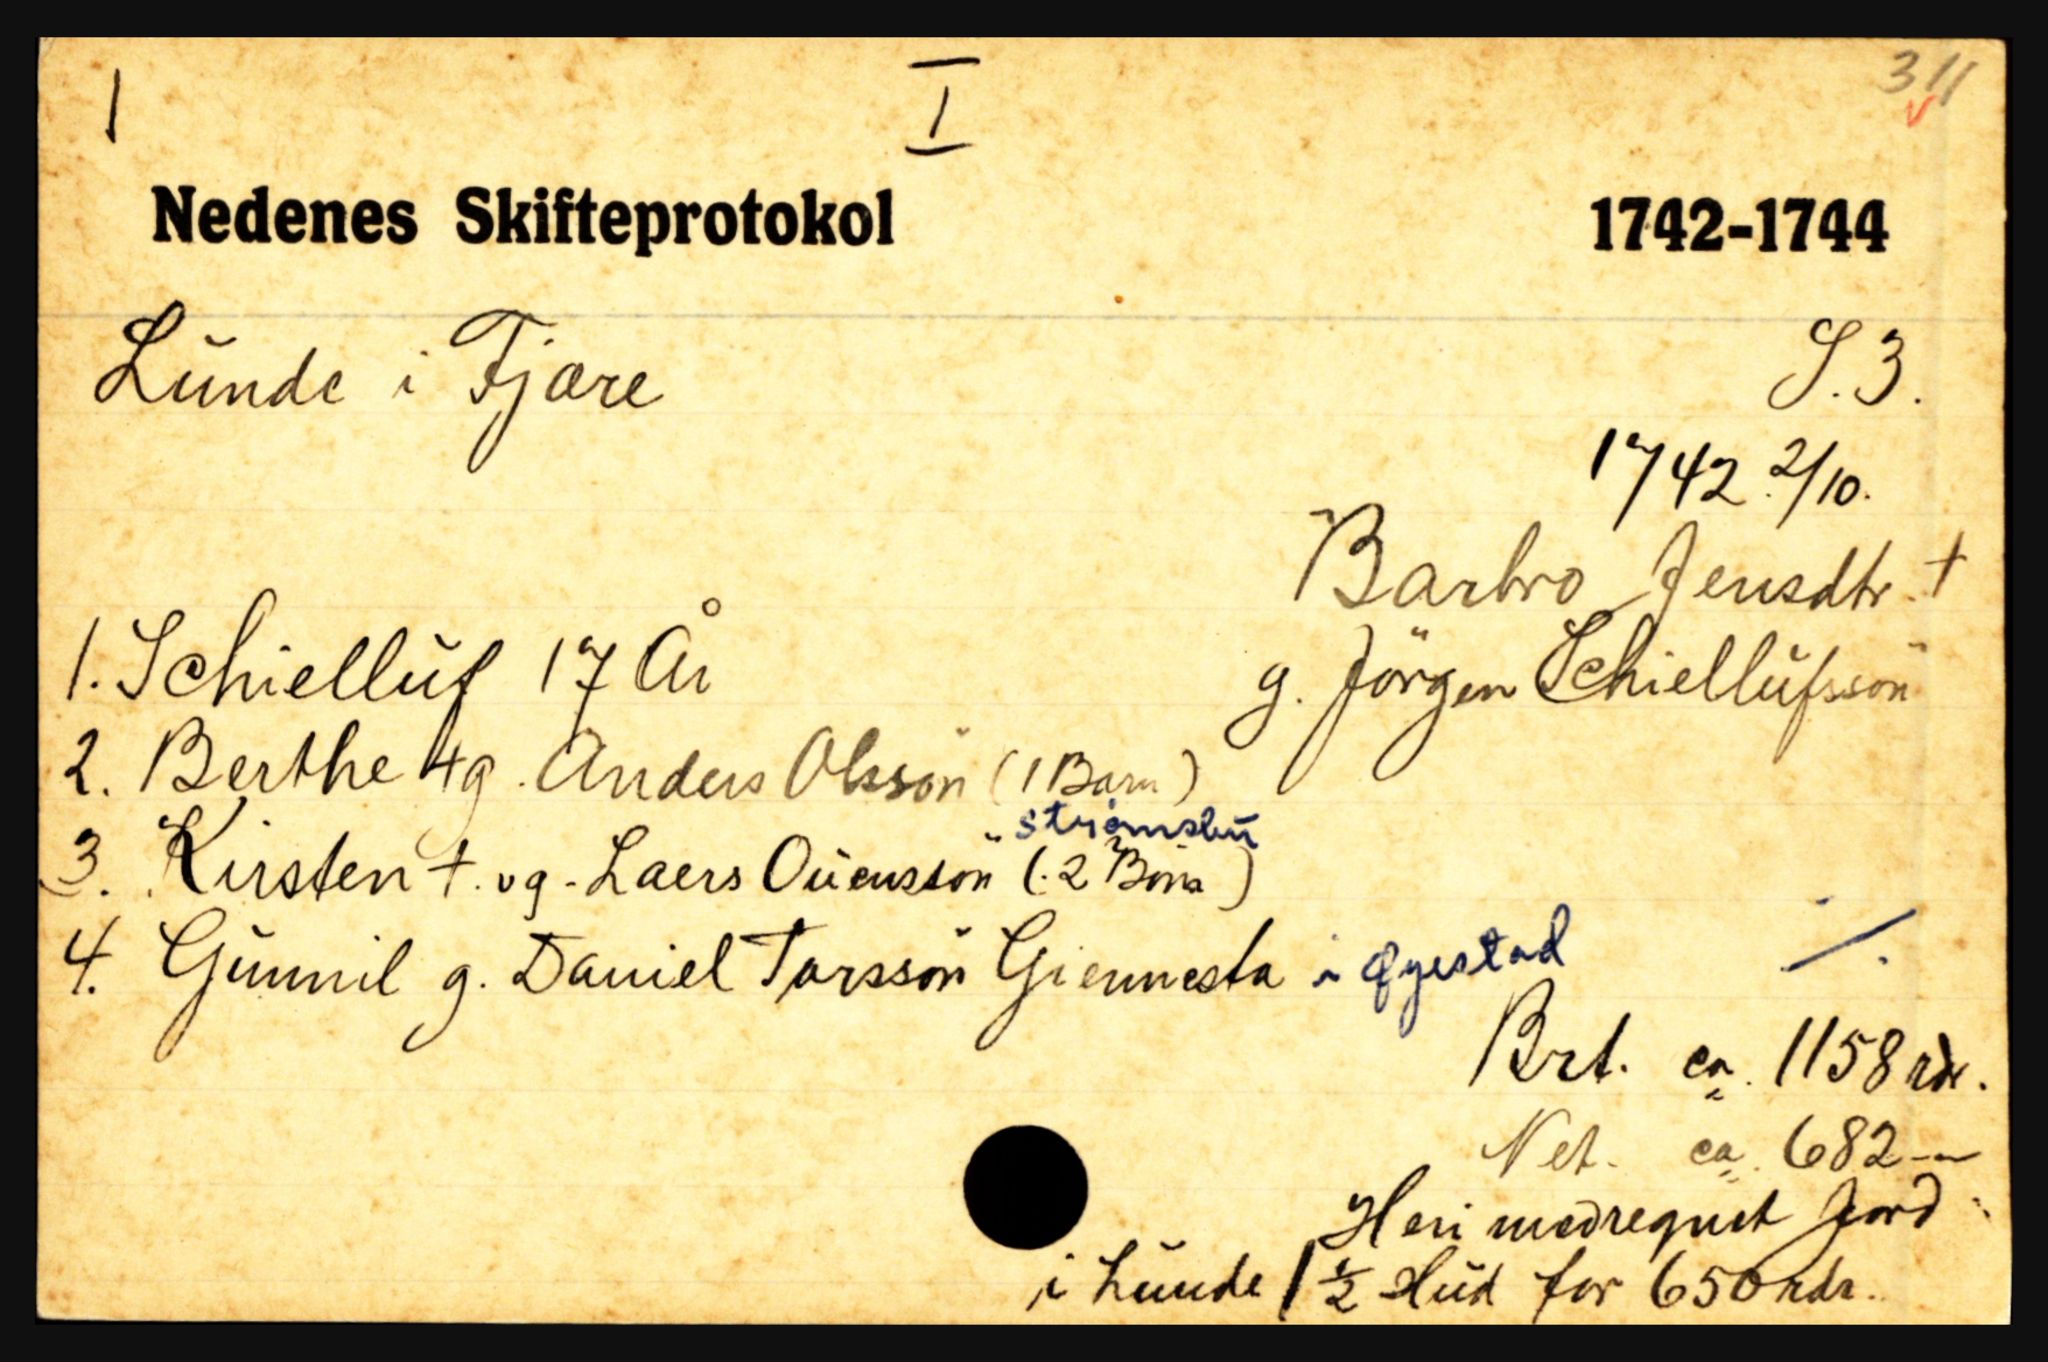 1 I 311
Nedenes Skifteprotokol 1742-1744
Lunde i Fjære S. 3.
1742 2/10.
Barbro Jensdtr. †
g. Jörgen Schiellufssön
1. Schielluf 17 År
2. Berthe † g. Anders Olssön (1 Barn)
Strømsbu
3. Kirsten †. v g. Laers Ouenssön (2 Börn)
4. Gunnil g. Daniel Tarssön Giennesta i Øyestad
Brt. ca. 1158 rdr.
Net. ca. 682 -
Heri medregnet Jord
i Lunde 1 1/2 Hud for 650 rdr.